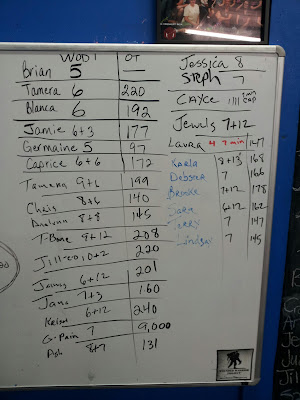 WOD 1 OT
Brian 5 —
Tamera 6 220
Blanca 6 192
Jamie 6+3 177
Germaine 5 97
Caprice 6+6 172
Tamara 9+6 199
Chris 8+6 140
8+8 145
T-Bone 8+12 208
Jill-co 10+2 220
6+12 201
Jana 7+3 160
6+12 240
G-Pain 7 9,000
Ash 8+7 131
Jessica 8
Steph 7
CAYCE
Jewels 7+12
Laura 4 7min 147
Karla 8+13 168
Debora 7 166
Brooke 7+12 178
Sara 6+12 162
Terry 7 147
Lindsay 7 145